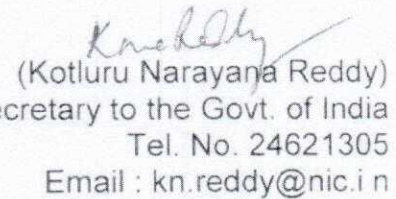 (Kotluru Narayana Reddy)
ecretary to the Govt. of India
Tel. No. 24621305
Email : kn.reddy@nic.i n